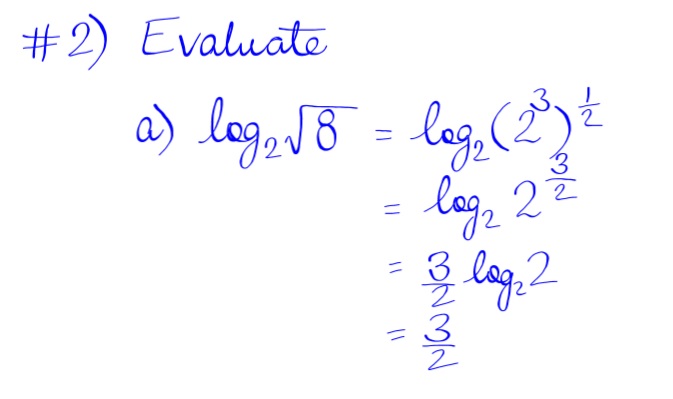 #2) Evaluate
a) log₂√8 = log₂(2³)^½
= log₂ 2^(3/2)
= 3/2 log₂2
= 3/2